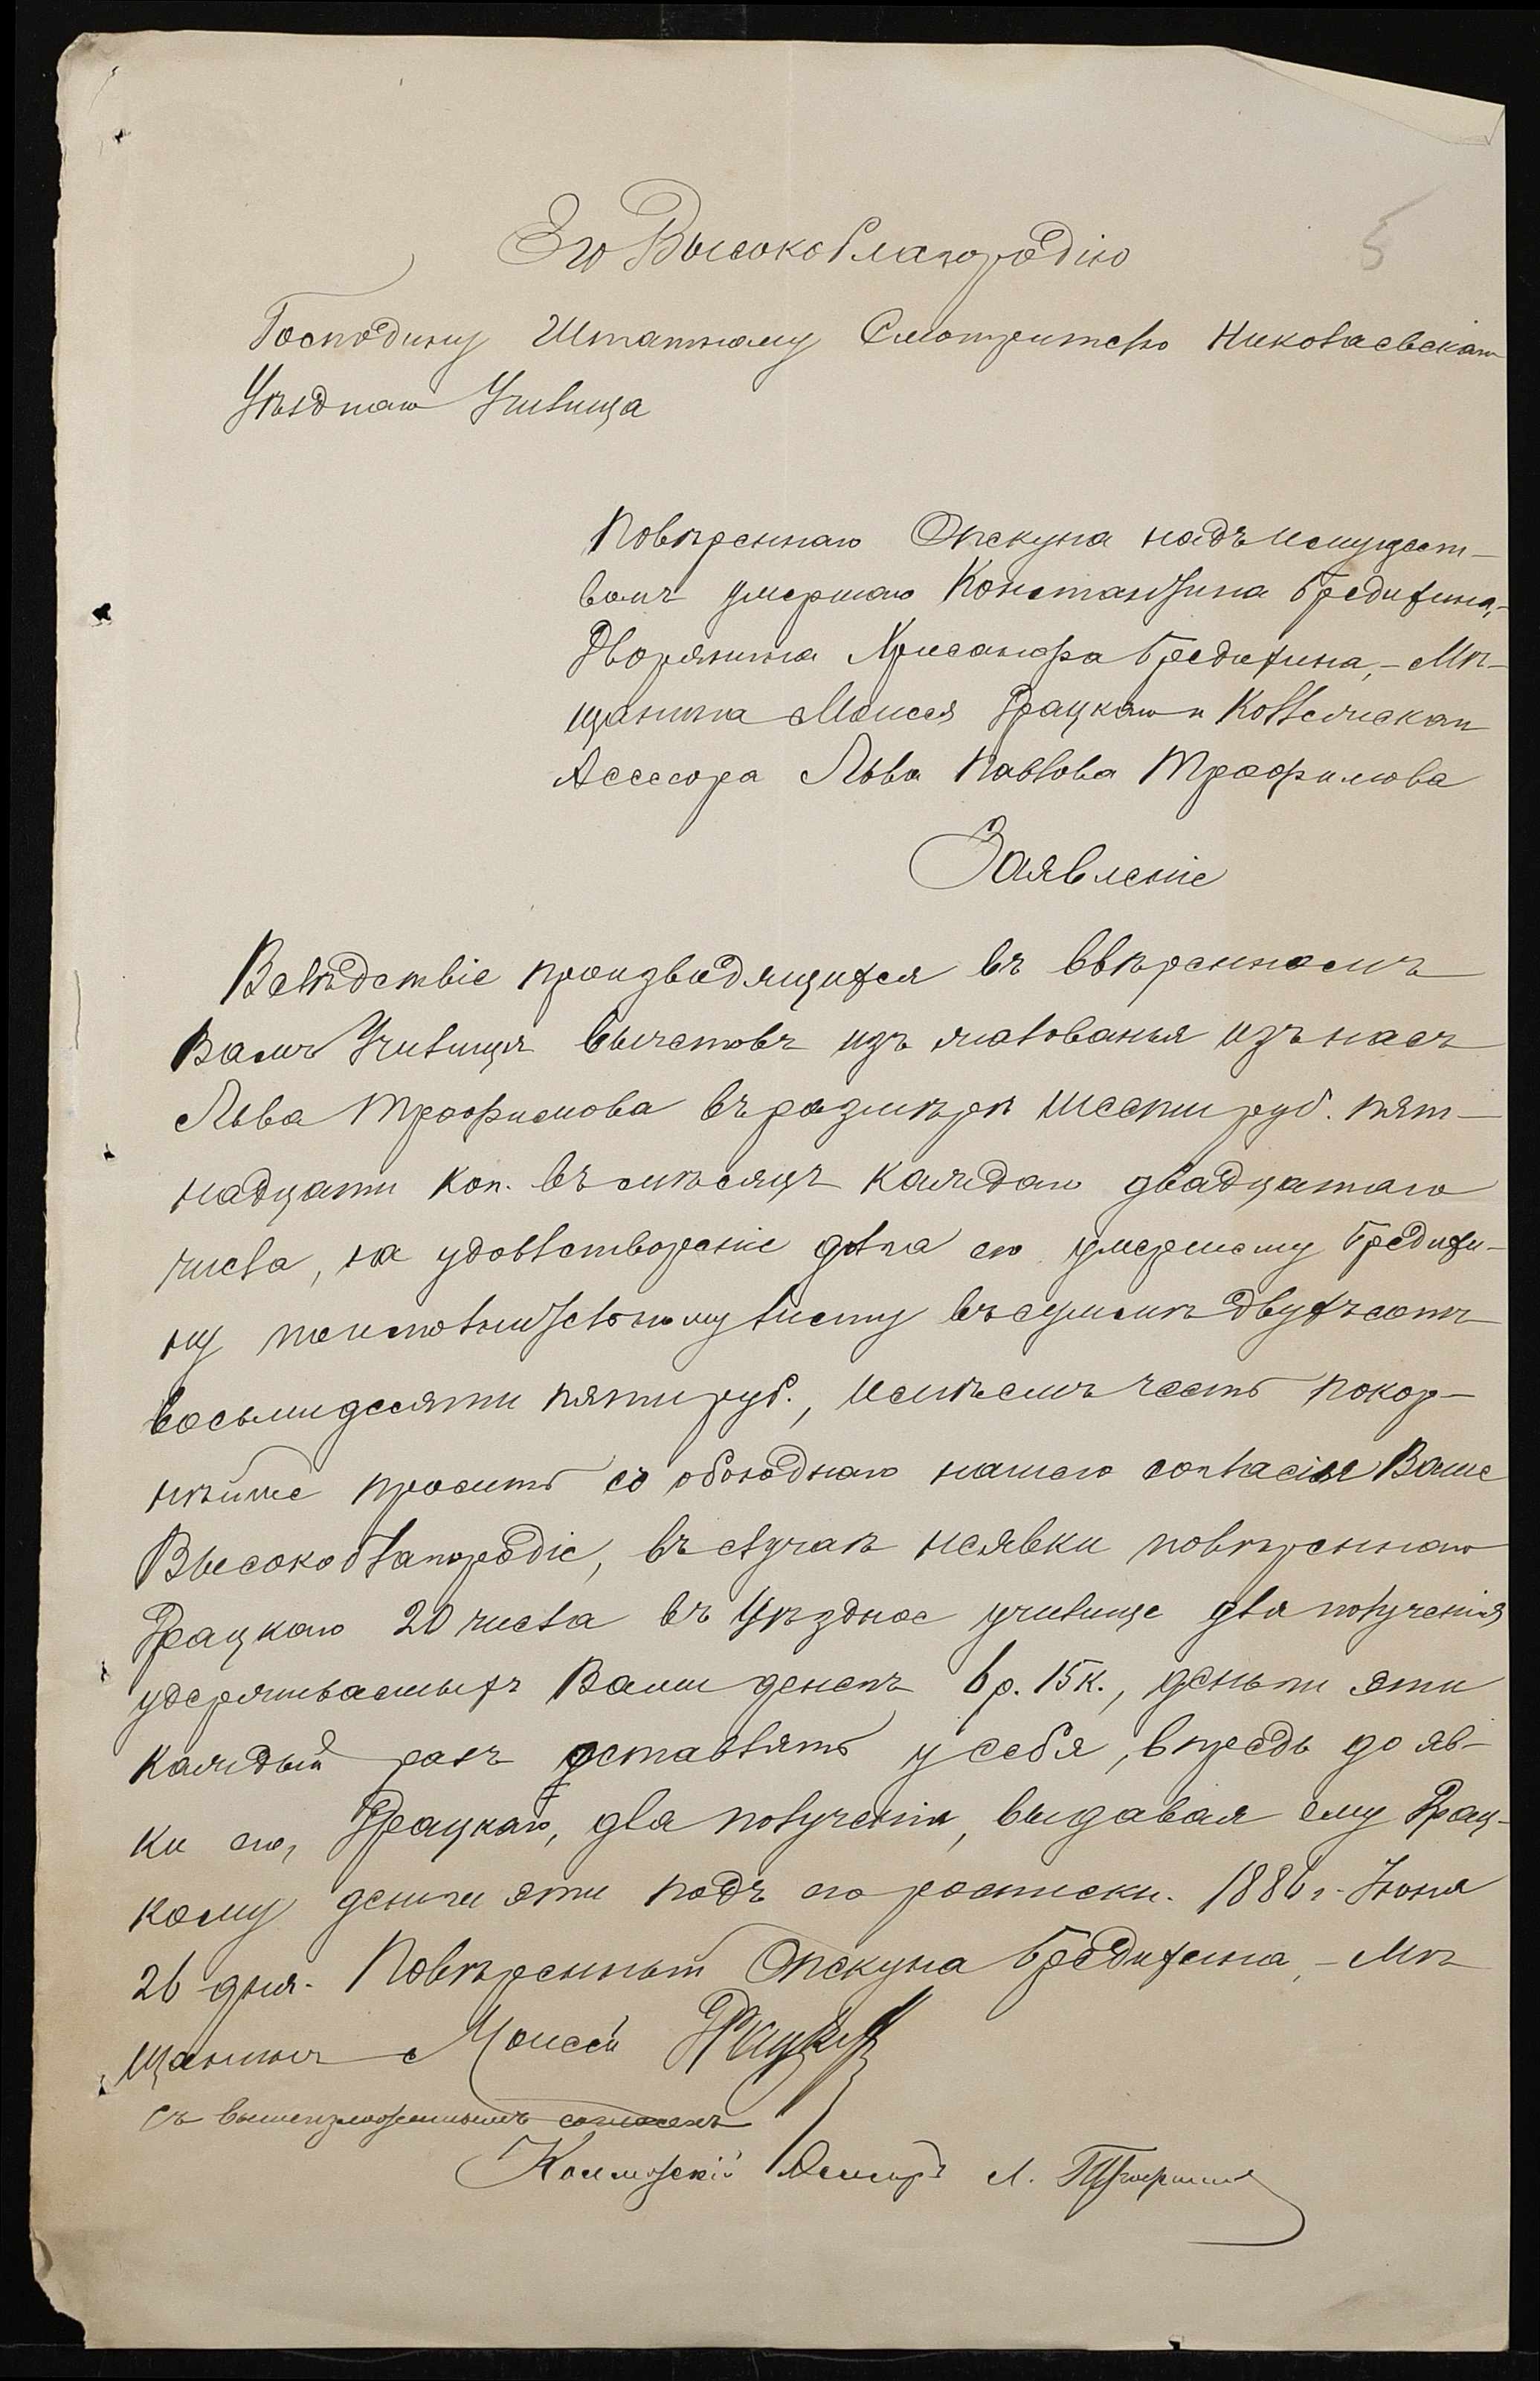 5
Его Высокоблагородію
Господину Штатному Смотрителю Николаевскаго
Уѣзднаго Училища
Повѣреннаго Опекуна надъ имущест-
вомъ умершаго Константина Бредихина,-
Дворянина Хрисанфа Бредихина,- Мѣ-
щанина Моисея Грацкаго и Коллежскаго
Асессора Льва Павлова Трофимова
Заявленіе
Вслѣдствіе производящихся въ ввѣренномъ
Вамъ Училищѣ вычетовъ изъ жалованья изъ насъ
Льва Трофимова въ размѣрѣ шести руб. пят-
надцати коп. въ мѣсяцъ каждаго двадцатаго
числа, на удовлетвореніе долга его умершему Бредихи-
ну по исполнительному листу въ суммѣ двухсотъ
восьмидесяти пяти руб., имѣемъ честь покор-
нѣйше просить съ обоюднаго нашего согласія Ваше
Высокоблагородіе, въ случаѣ неявки повѣреннаго
Грацкаго 20 числа въ Уѣздное училище для полученія
удерживаемыхъ Вами денегъ 6 р. 15 к., деньги эти
каждый разъ оставлять у себя, впредь до яв-
ки его, Грацкаго, для полученія, выдавая ему Грац-
кому деньги эти подъ его росписки. 1886 г. Іюня
26 дня. Повѣренный Опекуна Бредихина,- Мѣ
щанинъ Моисей Грацкій
Съ вышеизложеннымъ согласенъ
Коллежскій Асессоръ Л. Трофимовъ